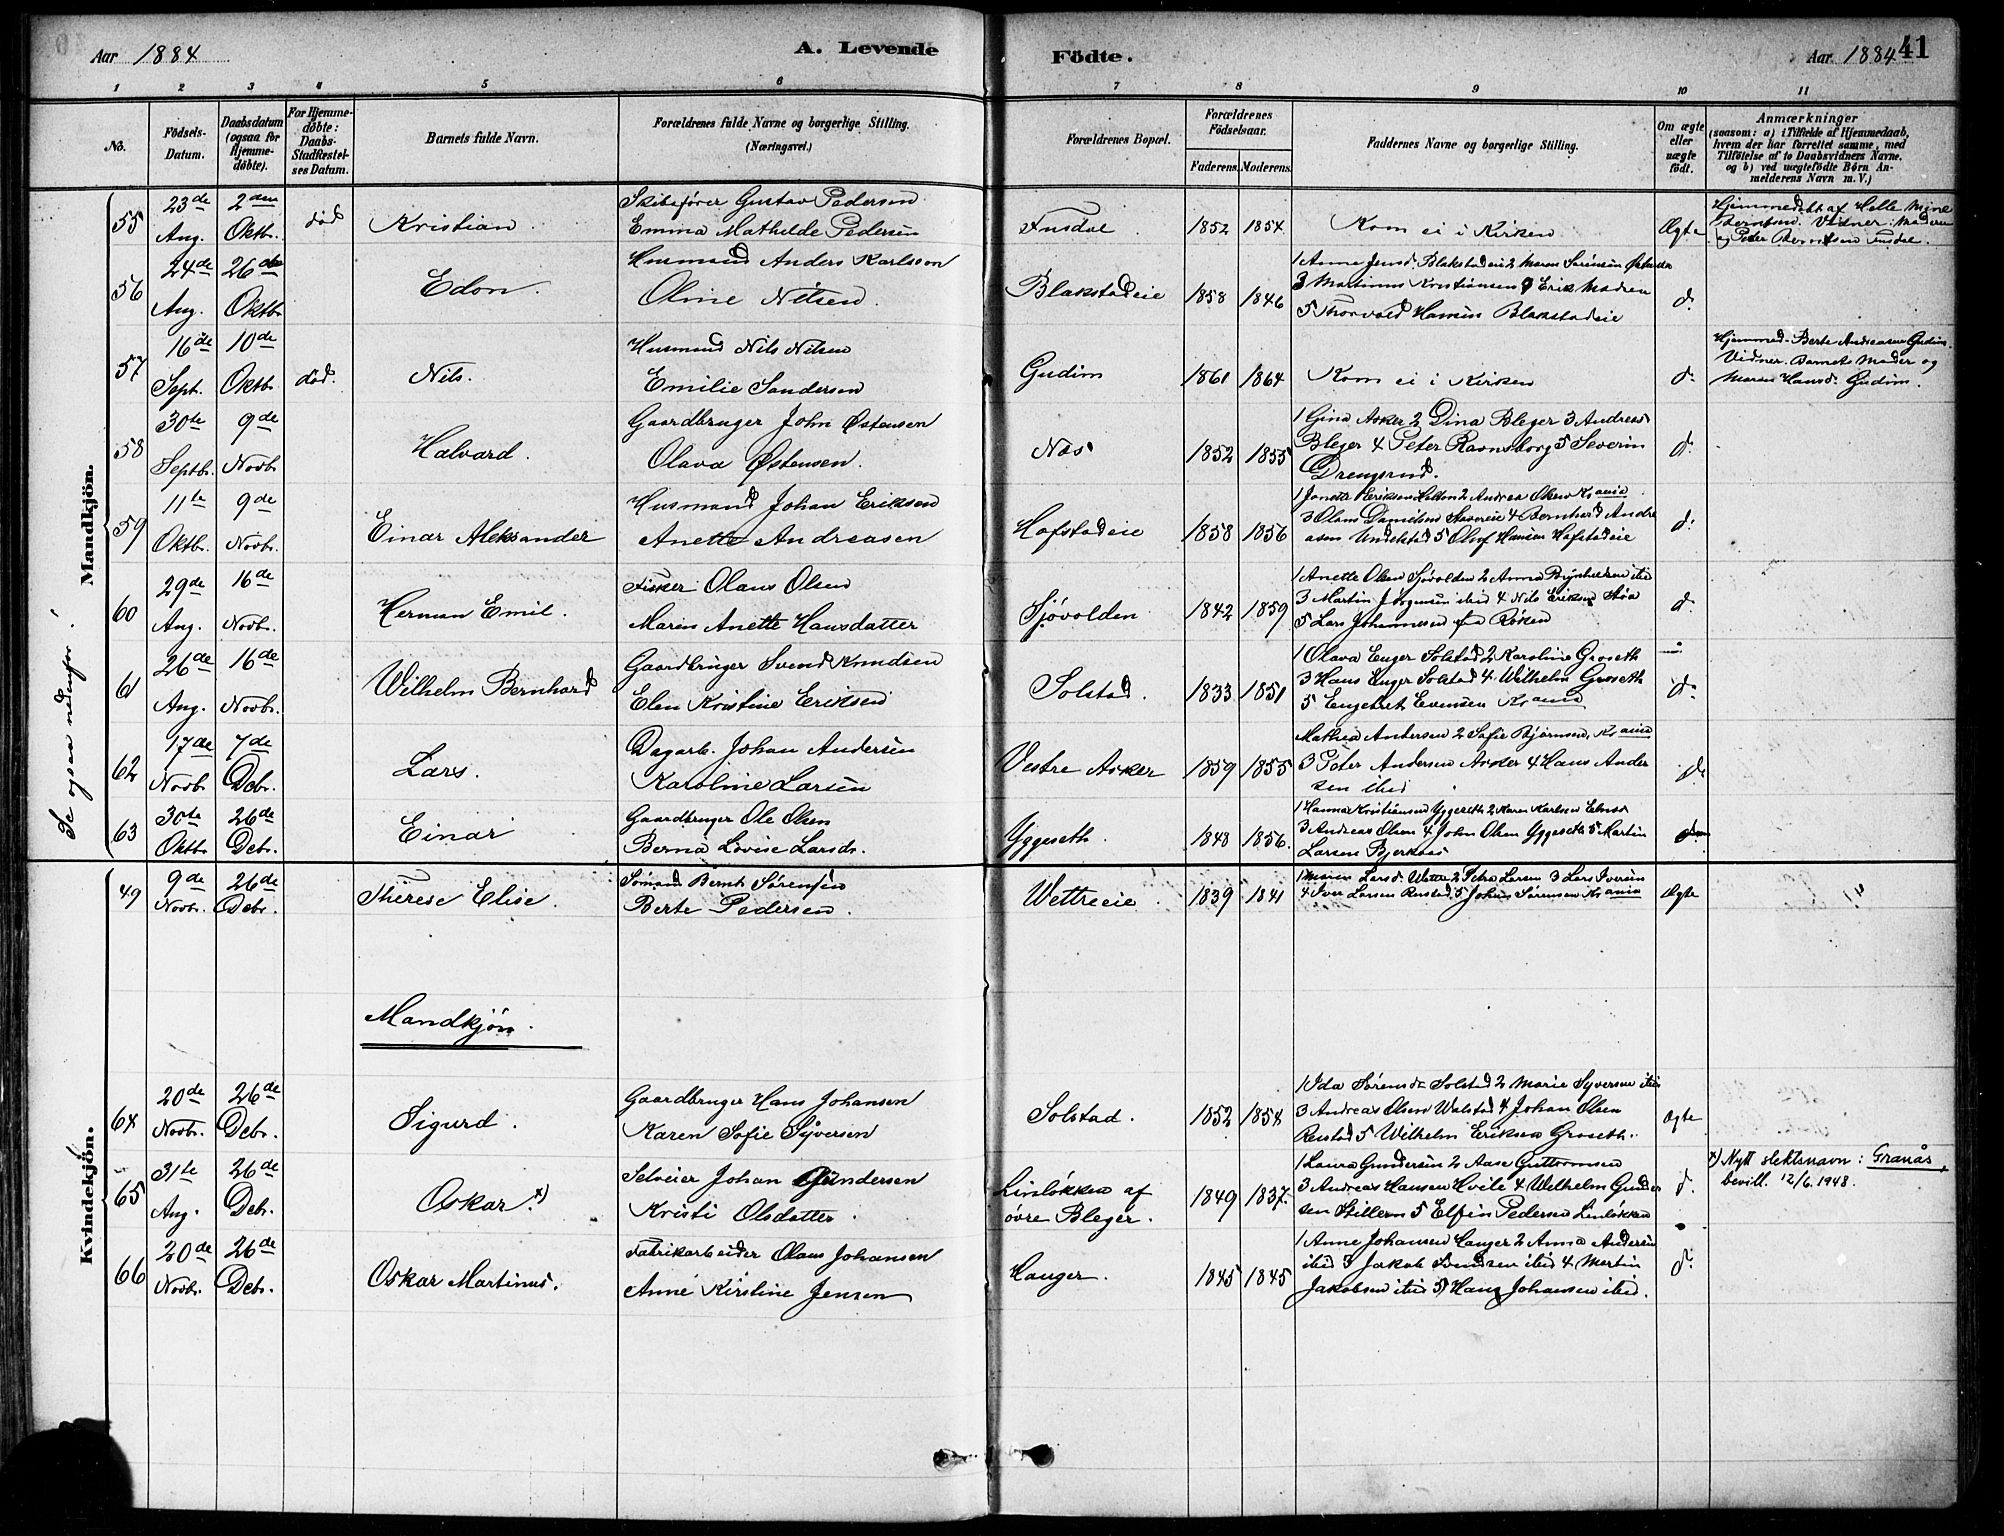 Aar 1884
A. Levende
Födte.
Aar 1884 41
1 2 3 4 5 6 7 8 9 10 11
No.
Födsels-Datum.
Daabsdatum (ogsaa för Hjemme-döbte).
For Hjemme-döbte: Daabs-Stadfæstel-ses Datum.
Barnets fulde Navn.
Forældrenes fulde Navne og borgerlige Stilling. (Næringsvei.)
Forældrenes Bopæl.
Forældrenes Födselsaar.
Faderens. Moderens.
Faddernes Navne og borgerlige Stilling.
Om ægte eller uægte födt.
Anmærkninger
(saasom: a) i Tilfælde af Hjemmedaab, hvem der har forrettet samme, med Tilföielse af to Daabsvidners Navne, og b) ved uægtefödte Börn An-melderens Navn m. V.)
Mandkjön.
Se ogsaa nedenfor!
55 23de Aug. 2den Oktbr. död Kristian
Skibsförer Gustav Pedersen
Emma Mathilde Pedersen
Fusdal 1852 1854 Kom ei i Kirken Ægte
Hjemmedöbt af Helle Mine
Berntsen. Vidner: Moderen
og Peter Berntsen Fusdal.
56 24de Aug. 26de Oktbr. Edon.
Husmand Anders Karlsson
Oline Nilsen.
Blakstadeie 1858 1846
1 Anna Jensd. Blakstadeie 2 Maren Sörensen
3 Martinus Kristiansen 4 Erik Madsen
5 Thorvald Hansen Blakstadeie
d.
57 16de Sept. 10de Oktbr. död. Nils.
Husmand Nils Nilsen
Emilie Sandersen
Gudim 1861 1864 Kom ei i Kirken d.
Hjemmed. Berte Andreasen Gudim.
Vidner. Barnets Moder og
Maren Hansd. Gudim.
58 30te Septbr. 9de Novbr. Halvard.
Gaardbruger John Östensen
Olava Östensen.
Næs 1852 1855
1 Gina Asker 2 Dina Bleger 3 Andreas
Bleger 4 Peter Ravnsborg 5 Severin
Drengsrud.
d.
59 11te Oktbr. 9de Novbr. Einar Aleksander
Husmand Johan Eriksen
Anette Andreasen
Hofstadeie 1858 1856
1 Janette Eriksen 2 Andrea Olsen Krania
3 Olaus Danielsen 4 Bernhard Andre
asen Undelstad 5 Oluf Hansen Hofstadeie
d.
60 29de Aug. 16de Novbr. Herman Emil.
Fisker Olaus Olsen
Maren Anette Hansdatter
Sjövolden 1842 1859
1 Anette Olsen Sjövolden 2 Anna Brynhildsen ibid
3 Martin Jörgensen ibid 4 Nils Eriksen
5 Lars Johannesen fra Röken
d.
61 26de Aug. 16de Novbr. Wilhelm Bernhard
Gaardbruger Svend Knudsen
Elen Kristine Eriksen
Solstad. 1833 1851
1 Olava Enger Solstad 2 Karoline Groseth
3 Hans Enger Solstad 4 Wilhelm Groseth
5 Engebret Evensen Krania
d.
62 17de Novbr. 7de Debr. Lars.
Dagarb. Johan Andersen
Karoline Larsen
Vestre Asker 1859 1855
Mathea Andersen 2 Sofie Björnsen, Krania
3 Peter Andersen Asker 4 Hans Ander
sen ibid
d.
63 30te Oktbr. 26de Debr. Einar
Gaardbruger Ole Olsen
Berna Lovise Larsdr.
Yggeseth. 1848 1856.
1 Hanna Kristiansen Yggeseth 2 Karen Karlsen
3 Andreas Olsen 4 John Olsen Yggeseth 5 Martin
Larsen Bjerkaas
d.
Kvindekjön.
49 9de Novbr. 26de Debr. Therese Elise.
Sömand Bernt Sörensen
Berte Pedersen.
Wettreeie 1839 1841
1 Maren Larsd. Wettre 2 Petra Larsen 3 Lars Iversen
4 Iver Larsen Renstad 5 Johan Sörensen Krania
Ægte
Mandkjön.
64 20de Novbr. 26de Debr. Sigurd.
Gaardbruger Hans Johansen
Karen Sofie Syversen
Solstad. 1852 1854
1 Ida Sörensdr Solstad 2 Marie Syversen ibid
3 Andreas Olsen Walstad 4 Johan Olsen
Renstad 5 Wilhelm Eriksen Groseth.
Ægte
65 31te Aug. 26de Debr. Oskar. x)
Selveier Johan Gundersen
Kristi Olsdatter.
Linlökken af
övre Bleger.
1849 1837.
1 Laura Gundersen 2 Aase Guttormsen
3 Andreas Hansen Hvile 4 Wilhelm Gunder
sen Stillern 5 Elfin Pedersen Linlökken
d.
x) Nytt slektsnavn: Granås,
bevill. 12/6. 1948.
66 20de Novbr. 26de Debr. Oskar Martinus.
Fabrikarbeider Olaus Johansen
Anne Kirstine Jensen
Hanger. 1845 1845
1 Anne Johansen Hanger 2 Anna Andersen
ibid 3 Jakob ibid 4 Martin
Jakobsen ibid 5) Hans Johansen ibid.
d.